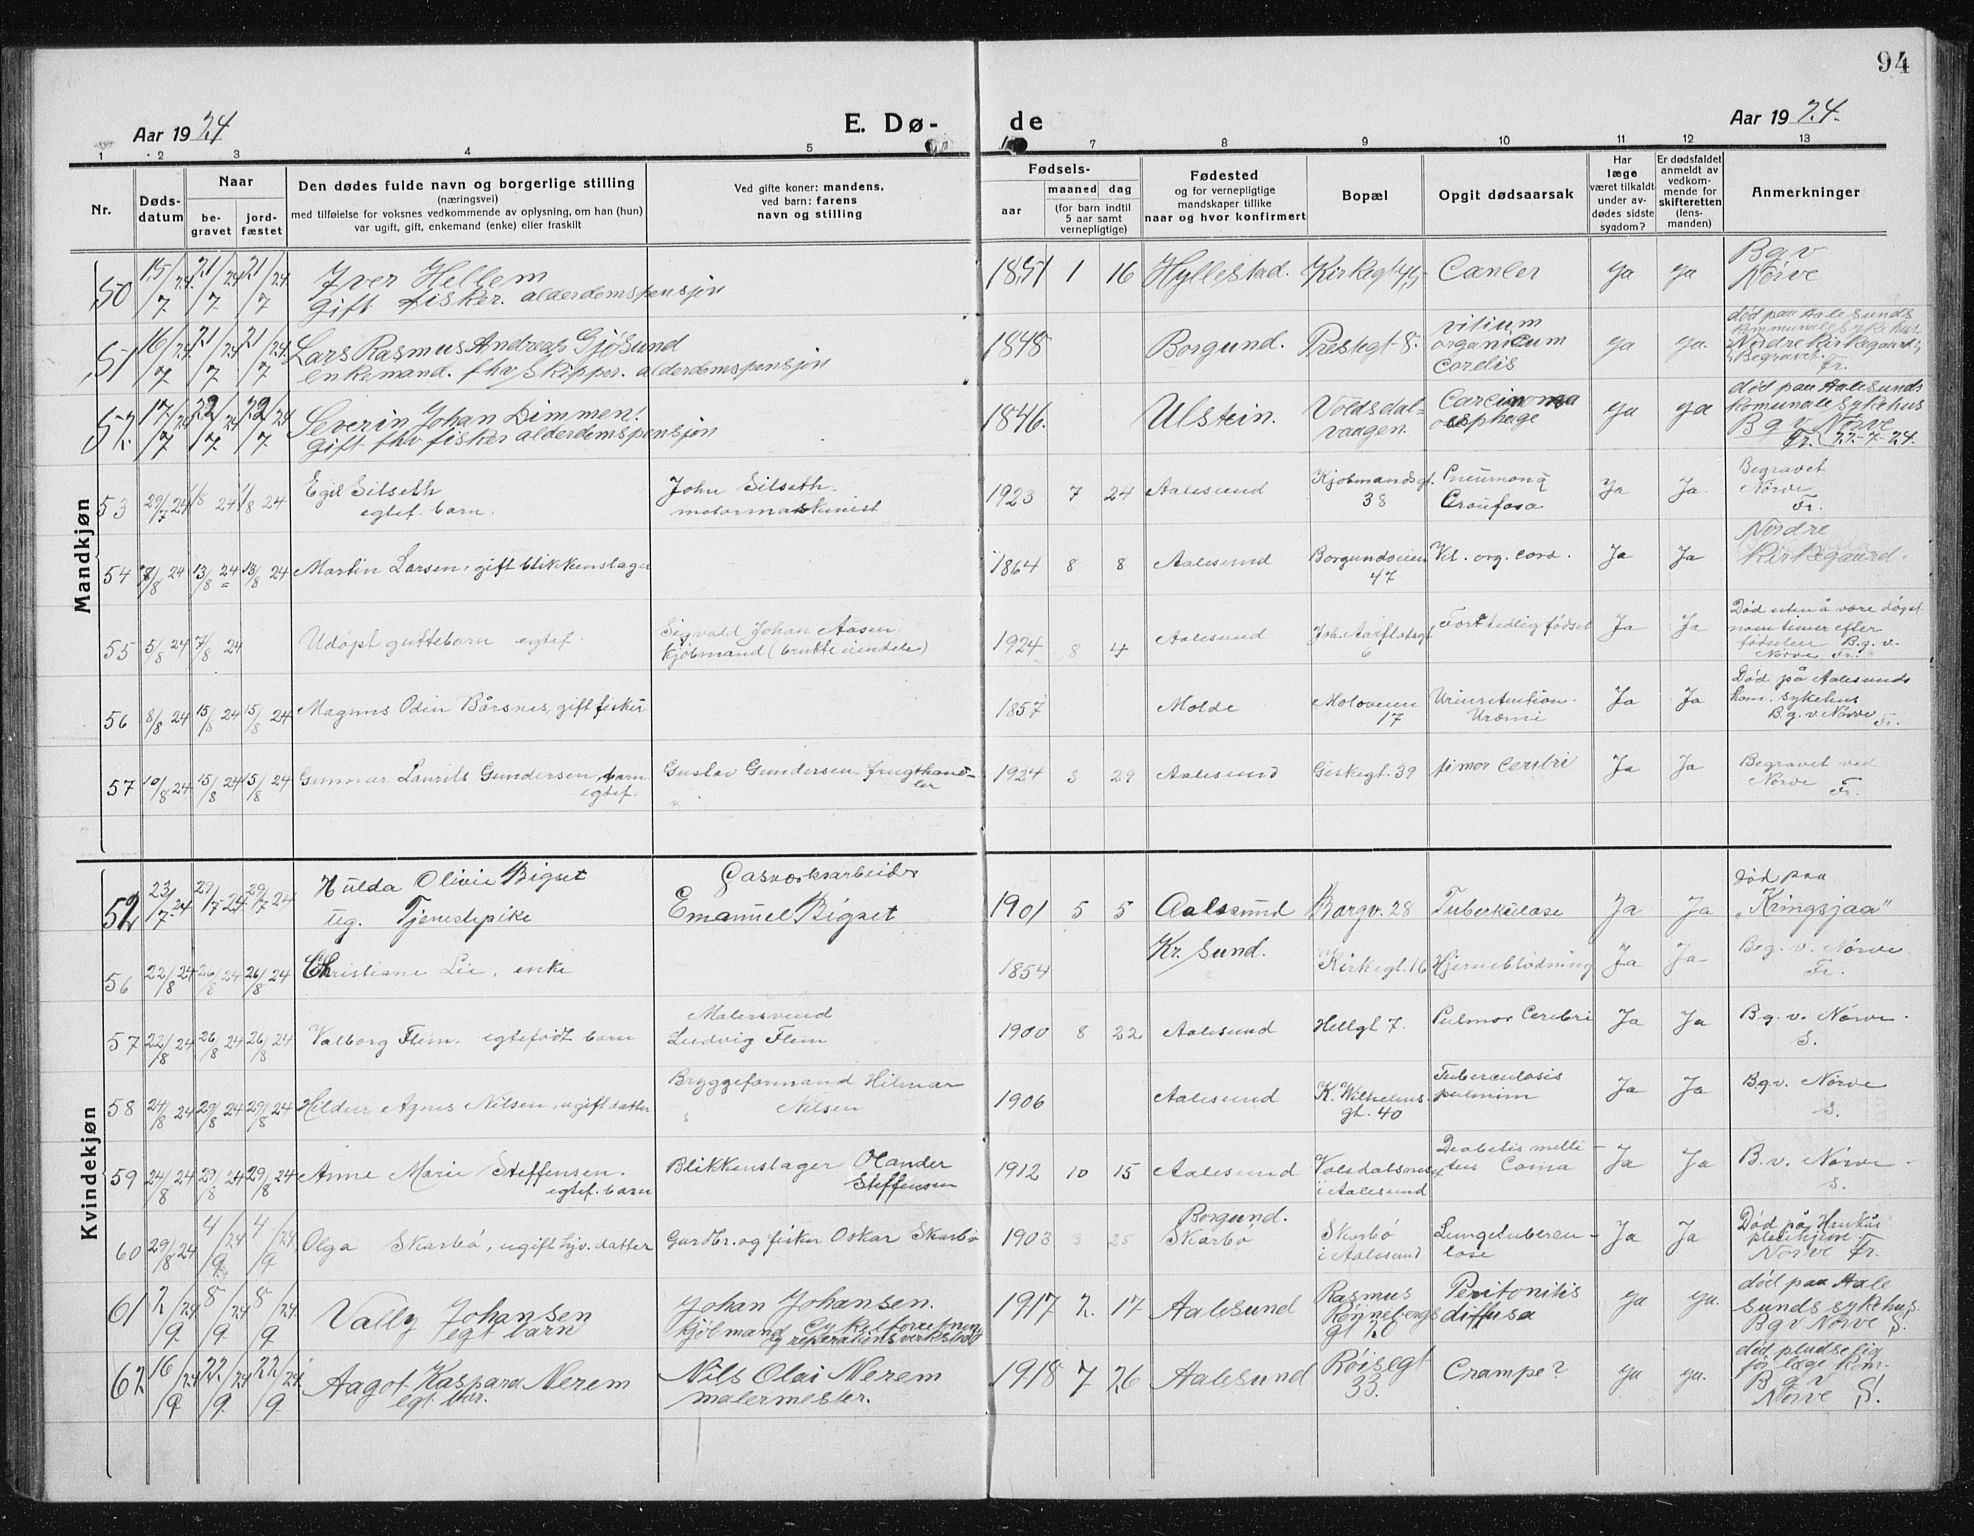 94
Aar 1924
E. Dø-
de
Aar 1924.
1 2 3 4 5 7 8 9 10 11 12 13
Nr.
Døds-
datum
Naar
be-
gravet
jord-
fæstet
Den dødes fulde navn og borgerlige stilling
(næringsvei)
med tilføielse for voksnes vedkommende av oplysning, om han (hun)
var ugift, gift, enkemand (enke) eller fraskilt
Ved gifte koner: mandens,
ved barn: farens
navn og stilling
Fødsels-
aar
maaned
dag
(for barn indtil
5 aar samt
vernepligtige)
Fødested
og for vernepligtige
mandskaper tillike
naar og hvor konfirmert
Bopæl
Opgit dødsaarsak
Har
læge
været tilkaldt
under av-
dødes sidste
sygdom?
Er dødsfaldet
anmeldt av
vedkom-
mende for
skifteretten
(lens-
manden)
Anmerkninger
Mandkjøn
50 15/7 24 21/7 24 21/7 24 Iver Hellem 1851 1 16 Hyllestad. Kirkegt 45 Cancer ya ya Bg v
gift fisker. alderdomspensjon Nørve
51 16/7 24 21/7 24 21/7 24 Lars Rasmus Andreas Gjøsund 1848 Borgund. Prestegt 8. vitium ya ya død paa Aalesunds
enkemand. fhv skipper. alderdomspensjon organicum kommunale sykehus
cordis Nordre Kirkegaard
Begravet
Fr.
52 17/7 24 22/7 24 22/7 24 Severin Johan Dimmen. 1846. Ulstein. Voldsdal- Carcinoma ya ya død paa Aalesunds
gift fhv fisker alderdomspensjon vaagen. oesphage komunale sykehus
Bg v Nørve
Fr. 22-7-24.
53 29/7 24 1/8 24 1/8 24 Egil Silseth John Silseth. 1923 7 24 Aalesund Kjøbmandsgt. Pneumonia Ja Ja Begravet
egtef. barn. motormaskinist 38 Croufosa Nørve
Fr.
54 8/8 24 13/8 24 13/8 24 Martin Larsen, gift blikkenslager 1864 8 8 Aalesund Borgundveien Vit. org. cord. Ja Ja Nordre
47 Kirkegaard.
55 5/8 24 7/8 24 Udøpt guttebarn egtef. Sigvald Johan Aasen 1924 8 4 Aalesund Joh. Aarflotsgt For tidlig fødsel Ja Ja Død uten å være døpt
kjøbmand (brukte eiendele) 6 noen timer efter
fødselen B.g. v.
Nørve. Fr.
56 8/8 24 15/8 24 15/8 24 Magnus Odin Bårsnes, gift fisker 1857 Molde Moloveien Urinretention. Ja Ja Død på Aalesunds
17 Uræmi kom. sykehus
B.g. v. Nørve Fr.
57 10/8 24 15/8 24 15/8 24 Gunnar Laurits Gundersen, barn Gustav Gundersen frugthand- 1924 3 29 Aalesund Geskegt. 39 Ja Ja Begravet ved
egtef. ler Nørve
Fr.
Kvindekjøn
52 23/7 24 29/7 24 29/7 24 Hulda Olivie Bigset Gasverksarbeider 1901 5 5 Aalesund Borgv. 28 Tuberkulose Ja Ja død paa
ug. Tjenestepike Emanuel Bigset „Kringsjaa”
56 22/8 24 26/8 24 26/8 24 Christiane Lie, enke 1854 Kr. Sund. Kirkegt. 16 Hjerneblødning Ja Ja Beg. v. Nørve
Fr.
57 22/8 24 26/8 24 26/8 24 Valborg Flem. egtefødt barn Malersvend 1900 8 22 Aalesund Hellgt 7. Cerebri Ja Ja B.g. v. Nørve.
Ludvig Flem S.
58 24/8 24 29/8 24 29/8 24 Hildur Agnes Nilsen, ugift datter Bryggeformand Hilmar 1906 Aalesund K. Wilhelms- Tuberculosis Ja Ja B.g.v. Nørve
Nilsen gt. 40 pulmum S.
59 24/8 24 29/8 24 29/8 24 Anne Marie Steffensen. Blikkenslager Olander 1912 10 15 Aalesund Volsdalsnes Deabetis melli- Ja Ja B.v. Nørve.
egtef. barn Steffensen i Aalesund tus Coma S.
60 29/8 24 4/9 24 4/9 24 Olga Skarbø, ugift hjv. datter Gardbr. og fisker Oskar Skarbø 1903 3 25 Borgund. Skarbø Lungetubercu- Ja Ja Død på Haukås
Skarbø i Aalesund lose pleiehjem.
Nørve Fr.
61 2/9 24 8/9 24 8/9 24 Vally Johansen Johan Johansen. 1917 2. 17 Aalesund Rasmus Peritonitis ya ya. død paa Aale
egt barn kjøbmand cykelforretning Rønnebergs diffusa sunds sykehus.
og reperationsverksted gt 20 Bg v Nørve S.
62 16/9 24 22/9 24 22/9 24 Aagot Kaspara Nerem Nils Olai Nerem 1918 7 26 Aalesund Røisegt Crampe? ya ya. død pludselig
egt bar. malermester. 33. før læge kom-
B g v
Nørve S.